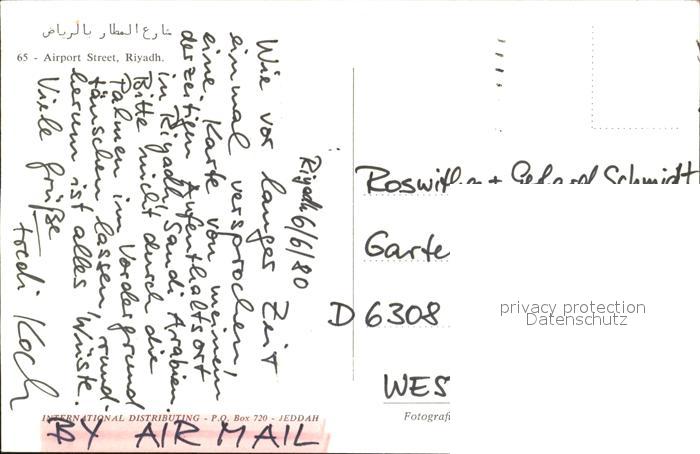 شارع المطار بالرياض
65 - Airport Street, Riyadh.
Riyadh 6/6/80
Wie vor langer Zeit
einmal versprochen,
eine Karte von meinem
derzeitigen Aufenthaltsort
in Riyadh, Saudi Arabien.
Bitte nicht durch die
Palmen im Vordergrund
täuschen lassen, rund-
herum ist alles Wüste.
Viele Grüße
Fredi Koch
INTERNATIONAL DISTRIBUTING - P.O. Box 720 - JEDDAH
BY AIR MAIL
Roswitha + Gerhard Schmidt
Garte
D 6308
WES
Fotografi
privacy protection
Datenschutz